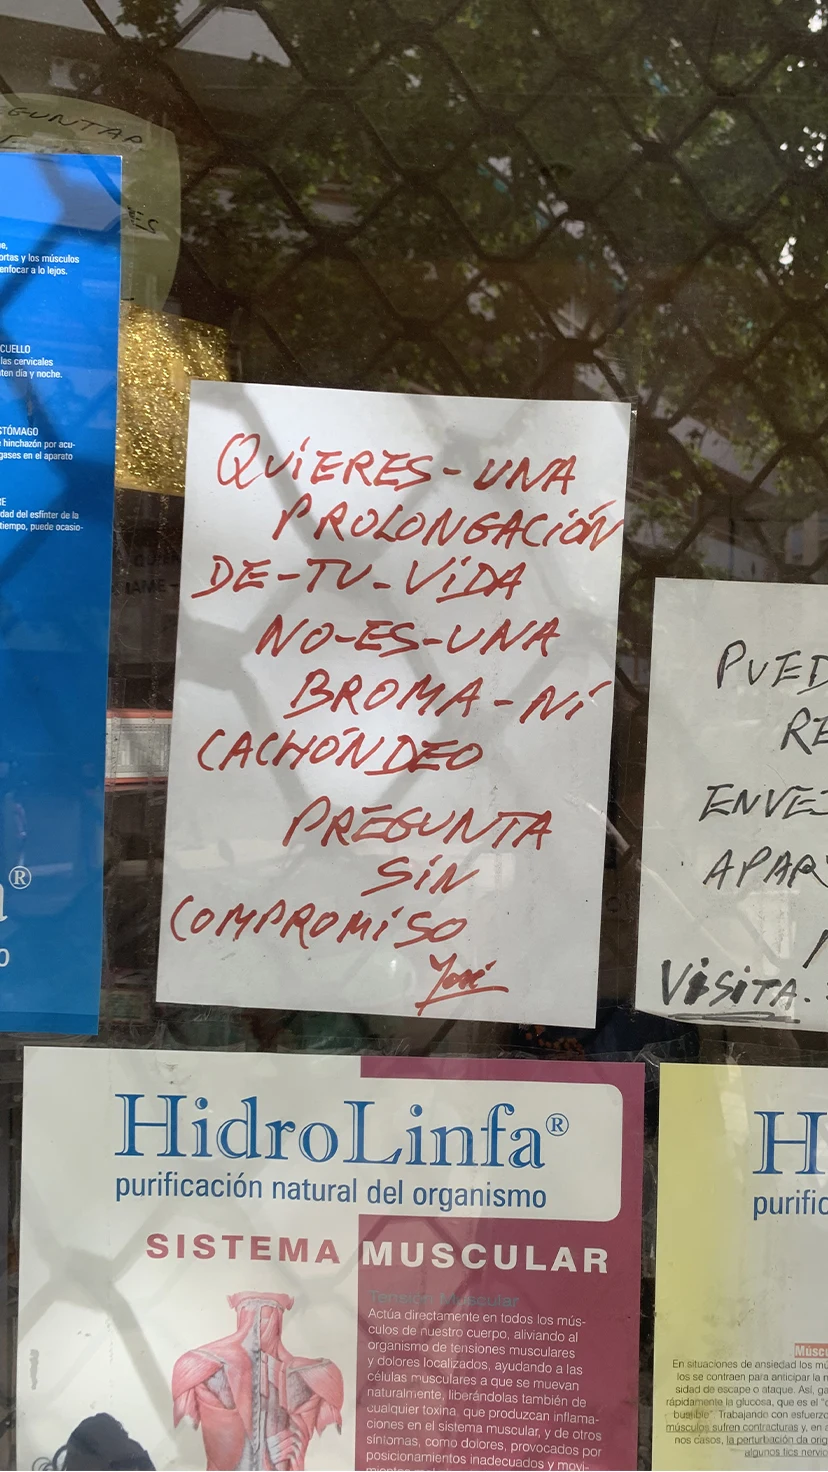 GUNTAR
ES
ortas y los músculos
enfocar a lo lejos.
CUELLO
las cervicales
ten día y noche.
STÓMAGO
hinchazón por acu-
gases en el aparato
dad del esfínter de la
tiempo, puede ocasio-
®
QUiERES-UNA
PROLONGACiÓN
DE-TU-ViDA
NO-ES-UNA
BROMA-Ni
CACHÓNDEO
PREGUNTA
SiN
COMPROMiSO
José
PUED
RE
ENVEJ
APAR
ViSiTA.
HidroLinfa®
purificación natural del organismo
SISTEMA MUSCULAR
Tensión muscular
Actúa directamente en todos los mús-
culos de nuestro cuerpo, aliviando al
organismo de tensiones musculares
y dolores localizados, ayudando a las
células musculares a que se muevan
naturalmente, liberándolas también de
cualquier toxina, que produzcan inflama-
ciones en el sistema muscular, y de otros
síntomas, como dolores, provocados por
posicionamientos inadecuados y movi-
H
purific
Múscu
En situaciones de ansiedad los mú
los se contraen para anticipar la n
sidad de escape o ataque. Así, ga
rápidamente la glucosa, que es el "c
bustible". Trabajando con esfuerzo
músculos sufren contracturas y, en a
nos casos, la perturbación da orig
algunos tics nervio